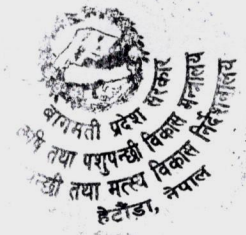 बागमती प्रदेश सरकार
तथा पशुपन्छी विकास मन्त्रालय
तथा मत्स्य विकास
हेटौंडा, नेपाल